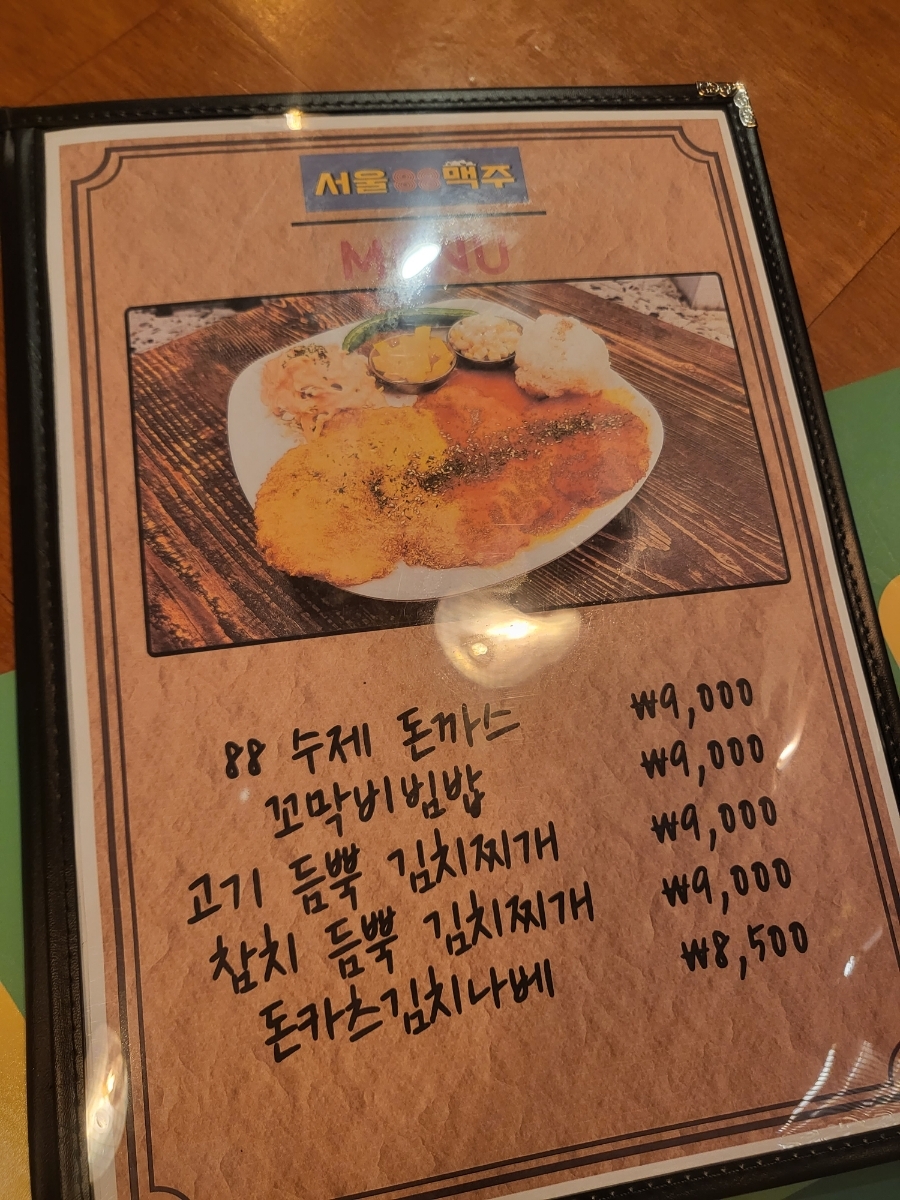 서울88맥주
MENU
88 수제 돈까스 ₩9,000
꼬막비빔밥 ₩9,000
고기 듬뿍 김치찌개 ₩9,000
참치 듬뿍 김치찌개 ₩9,000
돈카츠김치나베 ₩8,500